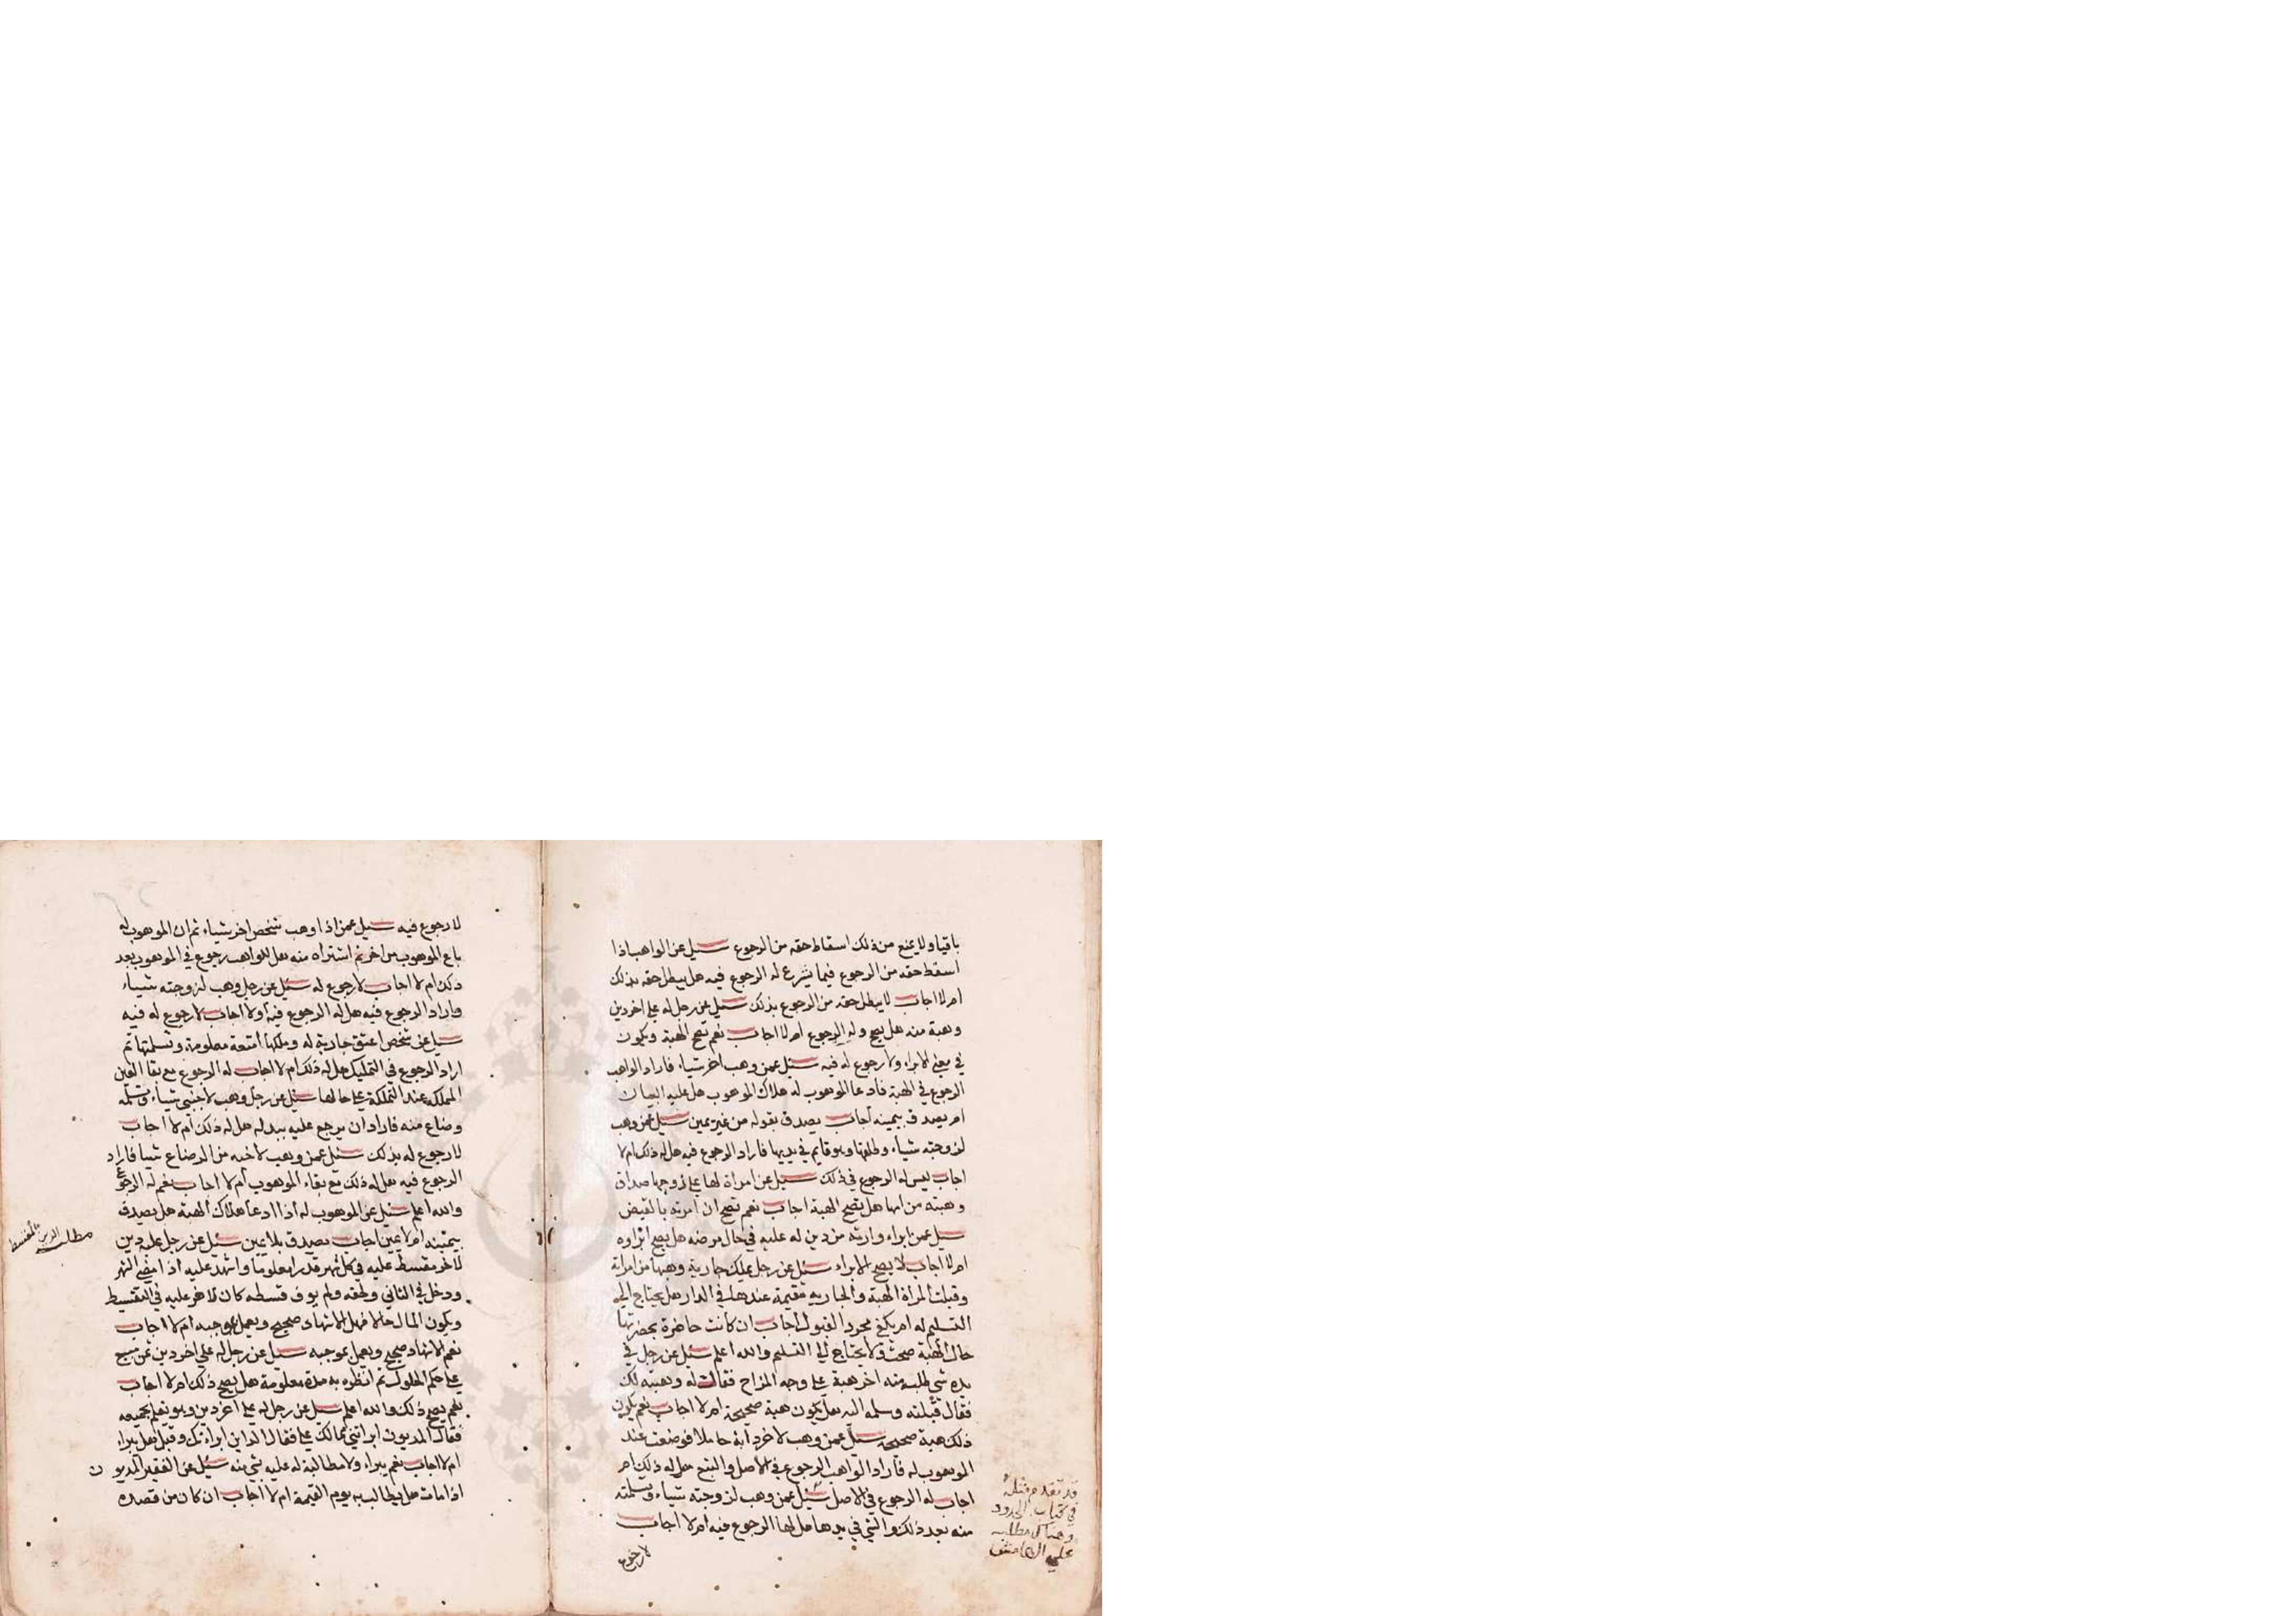 باقيا ولا يمنع من ذلك اسقاط حقه من الرجوع سيل عن الواهب اذا
اسقط حقه من الرجوع فيما يشرع له الرجوع فيه هل يبطل حقه بذلك
ام لا اجاب لا يبطل حقه من الرجوع بذلك سيل عن رجل له علي اخر دين
وهبة منه هل يصح وله الرجوع ام لا اجاب نعم تصح الهبة ويكون
في معني الابراء ولا رجوع له فيه سيل عمن وهب اخر شياء فاراد الواهب
الرجوع في الهبة فادعا الموهوب له هلاك الموهوب هل عليه البيان
ام يصدق بيمينه اجاب يصدق بقوله من غير يمين سيل عمن وهب
لزوجته شياء وطلقها وهو قايم في يديها فاراد الرجوع فيه هل له ذلك ام لا
اجاب ليس له الرجوع في ذلك سيل عن امراة لها علي زوجها صداق
وهبته من ابنها هل تصح الهبة اجاب نعم تصح ان امرته بالقبض
سيل عمن ابراء وارثه من دين له عليه في حال مرضه هل يصح ابراوه
ام لا اجاب لا يصح الابراء سيل عن رجل يملك جارية وهبها من امراة
وقبلت المراة الهبة والجارية مقيمة عندها في الدار هل يحتاج الي
التسليم له ام يكفي مجرد القبول اجاب ان كانت حاضرة بحضرتها
حال الهبة صحت ولا يحتاج الي التسليم والله اعلم سيل عن رجل في
يده شي طلبه منه اخر هبة علي وجه المزاح فقال له وهبته لك
فقال قبلته وسلمه اليه هل تكون هبة صحيحة ام لا اجاب نعم يكون
ذلك هبة صحيحة سيل عمن وهب لاخر دابة حاملا فوضعت عند
الموهوب له فاراد الواهب الرجوع في الاصل والنتج هل له ذلك ام
اجاب له الرجوع في الاصل سيل عمن وهب لزوجته شياء وتسلمته
منه بعد ذلك والشي في يدها هل لها الرجوع فيه ام لا اجاب
لا رجوع
قد تقدم مثله
في كتاب الحدود
وهناك مطلبه
علي الهامش
لا رجوع فيه سيل عمن اذا وهب شخص اخر شياء ثم ان الموهوب له
باع الموهوب من اخر ثم اشتراه منه هل للواهب رجوع في الموهوب بعد
ذلك ام لا اجاب لا رجوع له سيل عن رجل وهب لزوجته شياء
واراد الرجوع فيه هل له الرجوع فيه اولا اجاب لا رجوع له فيه
سيل عن شخص اعتق جارية له وملكها امتعة معلومة وتسلمتها ثم
اراد الرجوع في التمليك هل له ذلك ام لا اجاب له الرجوع مع بقا العين
المملكه عند المتملكة علي حالها سيل عن رجل وهب لاجنبي شياء وتسلمه
وضاع منه فاراد ان يرجع عليه ببدله هل له ذلك ام لا اجاب
لا رجوع له بذلك سيل عمن وهب لاخيه من الرضاع شيا فاراد
الرجوع فيه هل له ذلك مع بقاء الموهوب ام لا اجاب نعم له الرجوع
والله اعلم سيل عن الموهوب له اذا ادعا هلاك الهبة هل يصدق
بيمينه ام لا يمين اجاب يصدق بلا يمين سيل عن رجل عليه دين
لاخر مقسط عليه في كل شهر قدرا معلوما واشهد عليه اذا مضي الشهر
ودخل في الثاني ولم يوف قسطه كان عليه في التقسيط
ويكون المال حالا فهل الاشهاد صحيح ويعمل بموجبه ام لا اجاب
نعم الاشهاد صحيح ويعمل بموجبه سيل عن رجل له علي اخر دين ثمن مبيع
علي حكم الحلول ثم انظره به مدة معلومة هل يصح ذلك ام لا اجاب
نعم يصح ذلك والله اعلم سيل عن رجل له علي اخر دين وهو يعلم بجميعه
فقال المديون ابراتني مما لك علي فقال الداين ابراتك وقبل فهل يبراء
ام لا اجاب نعم يبراء ولا مطالبة له عليه بشي منه سيل عن الفقير المديون
اذا مات هل يطالب به يوم القيمة ام لا اجاب ان كان من قصده
مطلب الدين المقسط